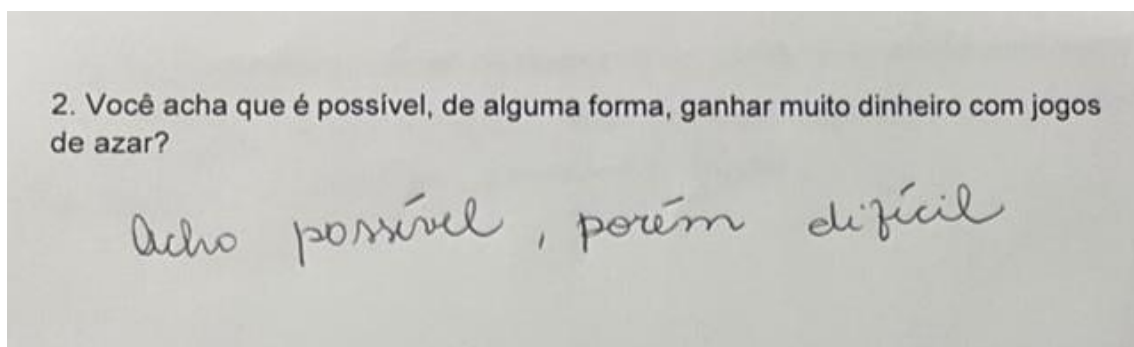 2. Você acha que é possível, de alguma forma, ganhar muito dinheiro com jogos
de azar?
Acho possível, porém difícil